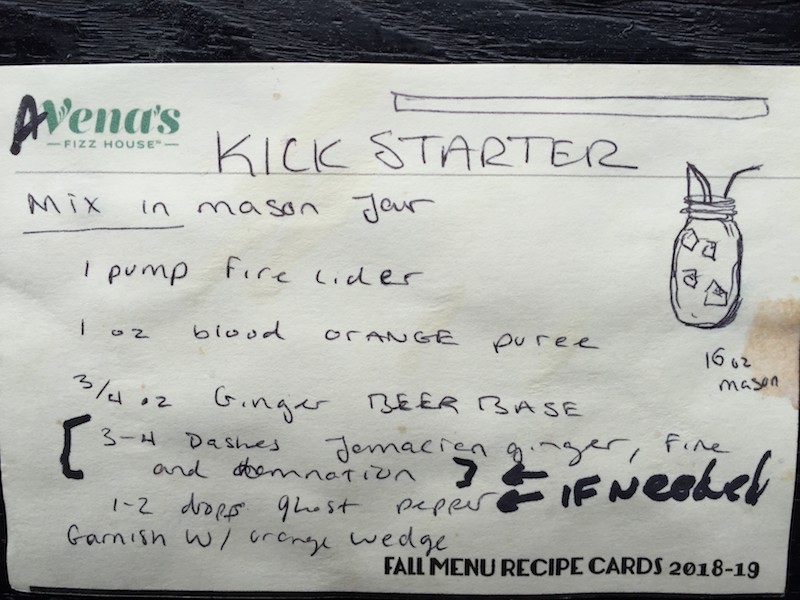 AVena's
FIZZ HOUSE™
KICK STARTER
Mix in mason Jar
1 pump fire cider
1 oz blood ORANGE puree
3/4 oz Ginger BEER BASE
[3-4 Dashes Jamacien ginger, Fire
and damnation] ← IF Needed
1-2 drops ghost pepper ←
Garnish w/ orange wedge
16 oz
mason
FALL MENU RECIPE CARDS 2018-19